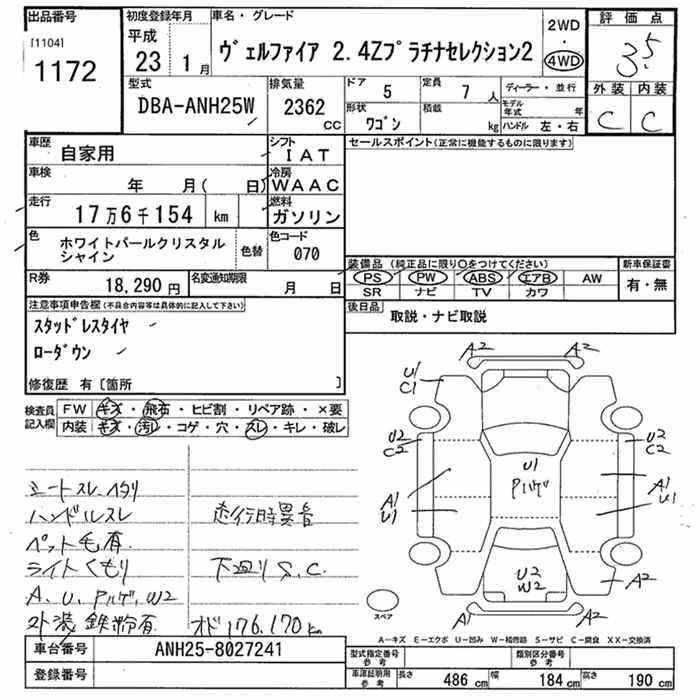 出品番号
[1104]
1172
初度登録年月
平成
23 1月
車名・グレード
ヴェルファイア 2.4Zプラチナセレクション2
2WD
・
4WD
評価点
3.5
外装 内装
C C
型式
DBA-ANH25W
排気量
2362
CC
ドア 5
定員 7 人
ディーラー・並行
形状 ワゴン
積載 kg
モデル年式 年
ハンドル 左・右
車歴 自家用
シフト IAT
車検 年 月( 日)
冷房 WAAC
走行 17万6千154 km
燃料 ガソリン
色 ホワイトパールクリスタルシャイン
色替
色コード 070
R券 18,290円
名変通知期限 月 日
セールスポイント(正常に機能するものに限ります)
装備品 (純正品に限り○をつけてください)
PS PW ABS エアB AW
SR ナビ TV カワ
新車保証書
有・無
後日品
取説・ナビ取説
注意事項申告欄(不具合内容等は具体的に記入して下さい)
スタッドレスタイヤ
ローダウン
修復歴 有〔箇所 〕
検査員記入欄
FW キズ・飛石・ヒビ割・リペア跡・×要
内装 キズ・汚レ・コゲ・穴・スレ・キレ・破レ
シートスレ、ヘタリ
ハンドルスレ
ペット毛有
ライトくもり
A、U、Pハゲ、W2
外装鉄粉有
走行時異音
下廻りS、C
オド176,170km
A2 A2
U1
C1
A2
U2
C2
U2
C2
A1
U1
U1
Pハゲ
A1
U1
U2
W2
A2
A1 A2
スペア
A-キズ E-エクボ U-凹み W-補修跡 S-サビ C-腐食 XX-交換済
車台番号 ANH25-8027241
登録番号
型式指定番号
参考
類別区分番号
参考
車庫証明用
参考
長さ 486 cm
幅 184 cm
高さ 190 cm